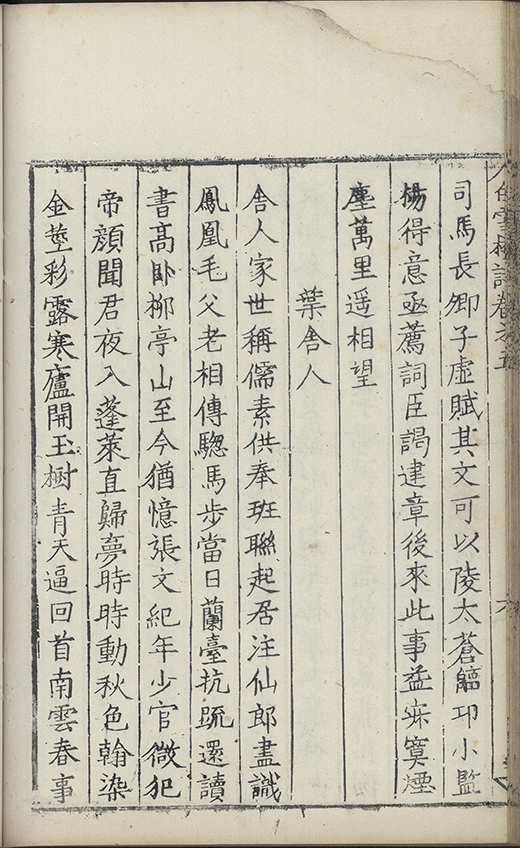 白雪樓詩卷之五
六
司馬長卿子虛賦其文可以陵太蒼臨卭小監
楊得意亟薦詞臣謁建章後來此事益寂寞煙
塵萬里遥相望
葉舍人
舍人家世稱儒素供奉班聯起居注仙郎盡識
鳳凰毛父老相傳驄馬步當日蘭臺抗疏還讀
書高卧柳亭山至今猶憶張文紀年少官微犯
帝顔聞君夜入蓬萊直歸夢時時動秋色翰染
金莖彩露寒廬開玉樹青天逼回首南雲春事